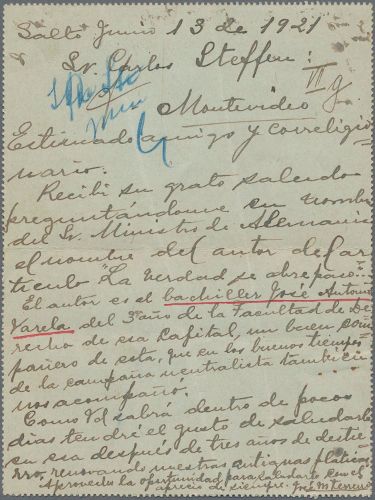 Salto Junio 13 de 1921
Sr. Carlos Steffen:
Montevideo
Estimado amigo y correligio
nario.
Recibí su grato saludo
preguntándome en nombre
del Sr. Ministro de Alemania
el nombre del autor del ar
tículo "La verdad se abre paso"
El autor es el bachiller José Antonio
Varela del 3er año de la Facultad de De
recho de esa Capital, un buen com
pañero de esta, que en los buenos tiempos
de la campaña neutralista también
nos acompañó.
Como Vd sabrá dentro de pocos
días tendré el gusto de saludarlo
en esa después de tres años de destie
rro, renovando nuestras antiguas pláticas
Aprovecho la oportunidad para saludarle con el
aprecio de siempre. José M.